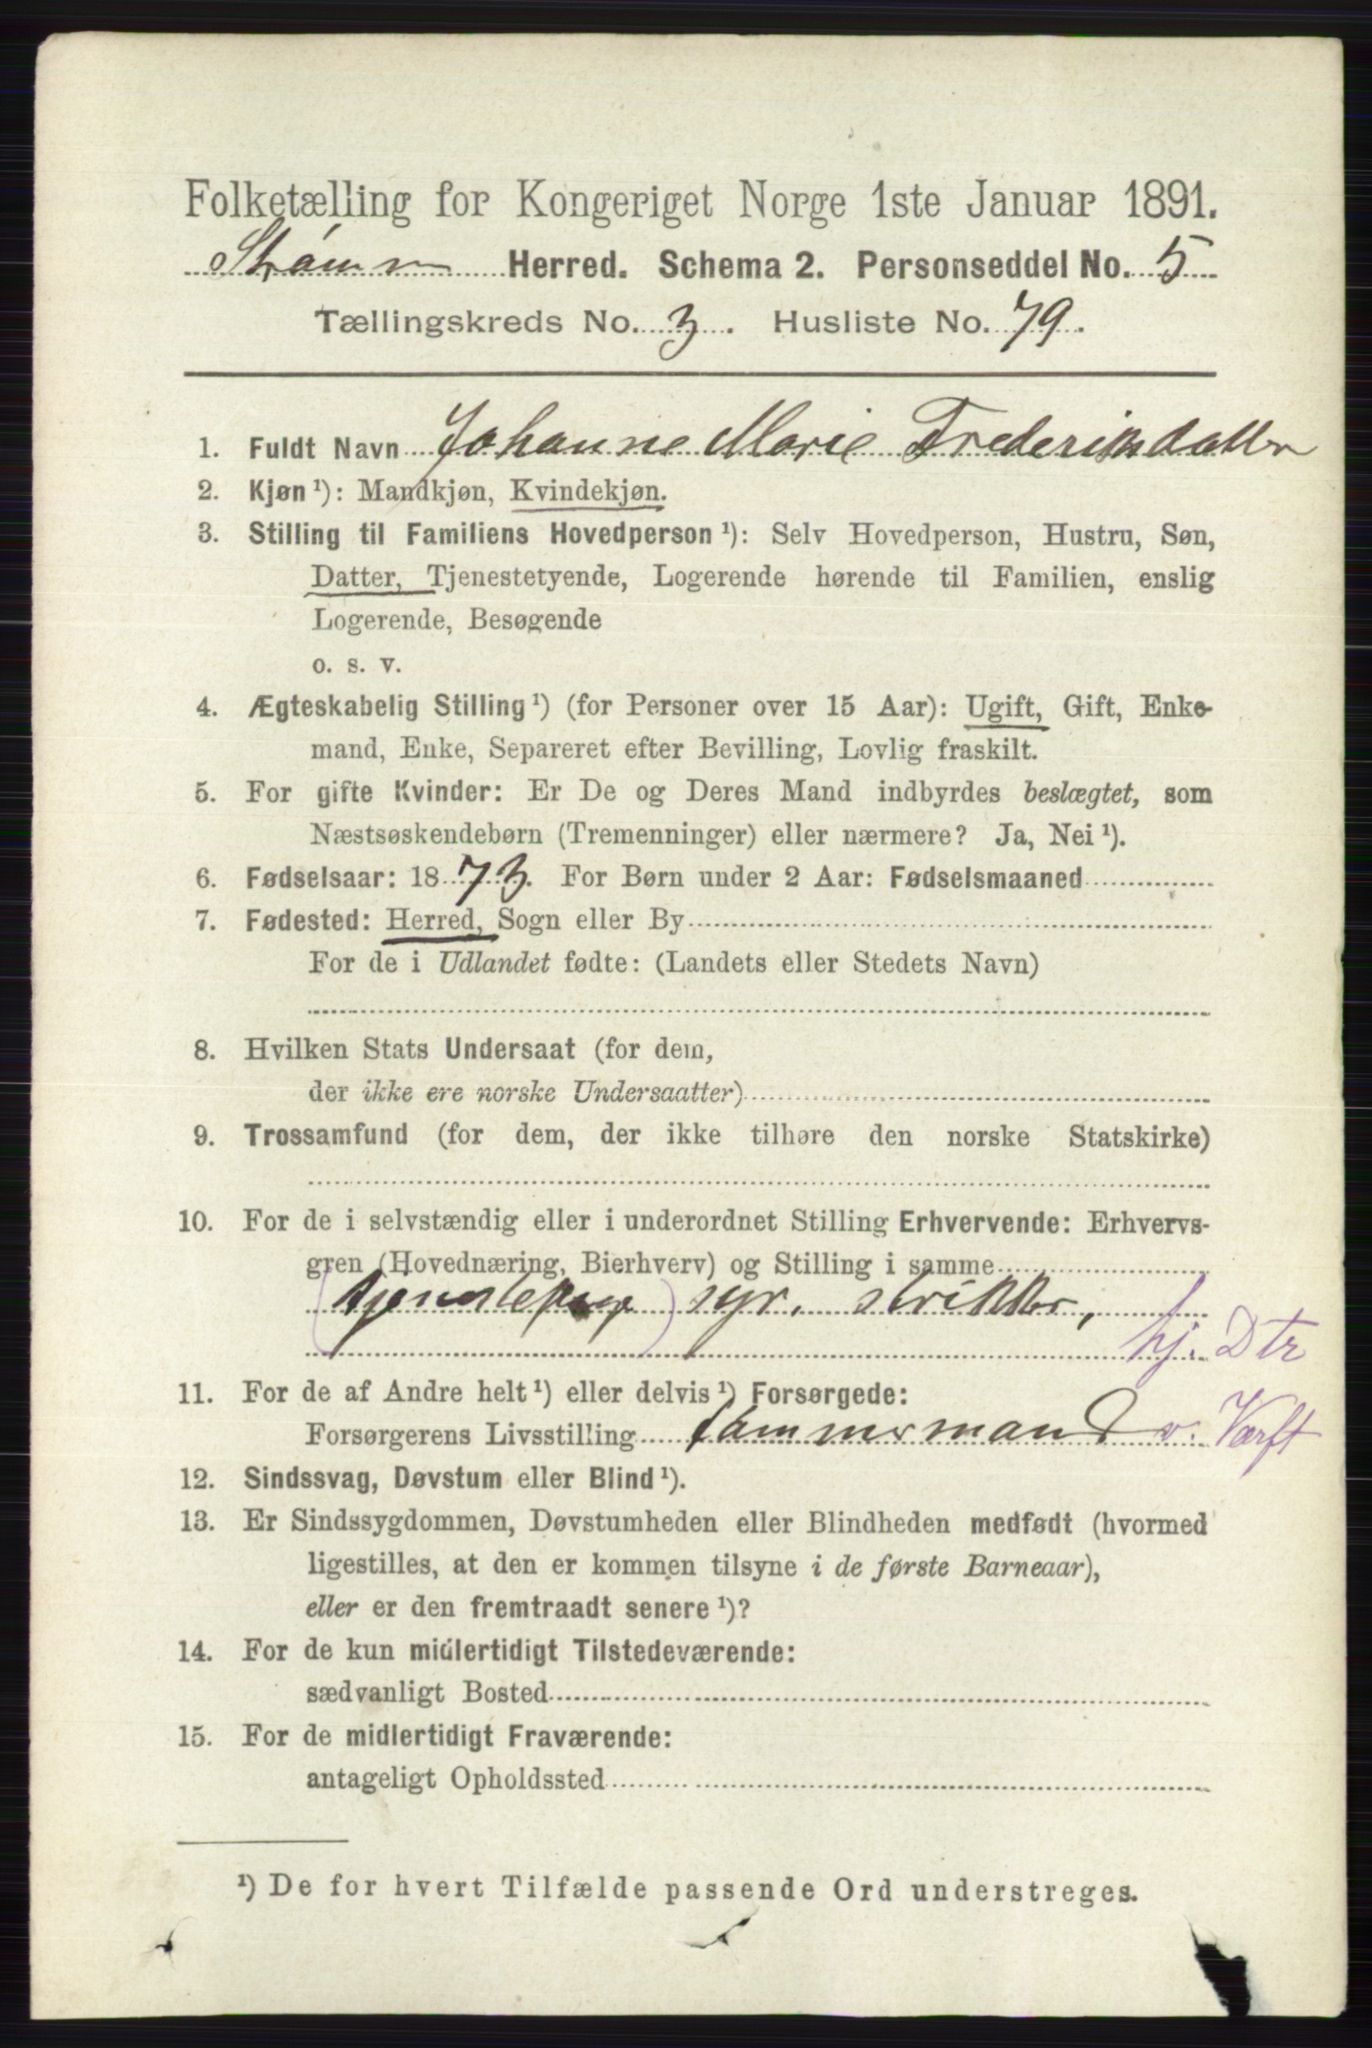 Folketælling for Kongeriget Norge 1ste Januar 1891.
Strømm Herred. Schema 2. Personseddel No. 5
Tællingskreds No. 3. Husliste No. 79.
1. Fuldt Navn Johanne Marie Frederiksdatter
2. Kjøn ¹): Mandkjøn, Kvindekjøn.
3. Stilling til Familiens Hovedperson ¹): Selv Hovedperson, Hustru, Søn,
Datter, Tjenestetyende, Logerende hørende til Familien, enslig
Logerende, Besøgende
o. s. v.
4. Ægteskabelig Stilling ¹) (for Personer over 15 Aar): Ugift, Gift, Enke-
mand, Enke, Separeret efter Bevilling, Lovlig fraskilt.
5. For gifte Kvinder: Er De og Deres Mand indbyrdes beslægtet, som
Næstsøskendebørn (Tremenninger) eller nærmere? Ja, Nei ¹).
6. Fødselsaar: 1873. For Børn under 2 Aar: Fødselsmaaned
7. Fødested: Herred, Sogn eller By
For de i Udlandet fødte: (Landets eller Stedets Navn)
8. Hvilken Stats Undersaat (for dem,
der ikke ere norske Undersaatter)
9. Trossamfund (for dem, der ikke tilhøre den norske Statskirke)
10. For de i selvstændig eller i underordnet Stilling Erhvervende: Erhvervs-
gren (Hovednæring, Bierhverv) og Stilling i samme
(tjenestepige) syr, strikker,
hj. Dtr
11. For de af Andre helt ¹) eller delvis ¹) Forsørgede:
Forsørgerens Livsstilling Tømmermand v. Værft
12. Sindssvag, Døvstum eller Blind ¹).
13. Er Sindssygdommen, Døvstumheden eller Blindheden medfødt (hvormed
ligestilles, at den er kommen tilsyne i de første Barneaar),
eller er den fremtraadt senere ¹)?
14. For de kun midlertidigt Tilstedeværende:
sædvanligt Bosted
15. For de midlertidigt Fraværende:
antageligt Opholdssted
¹) De for hvert Tilfælde passende Ord understreges.